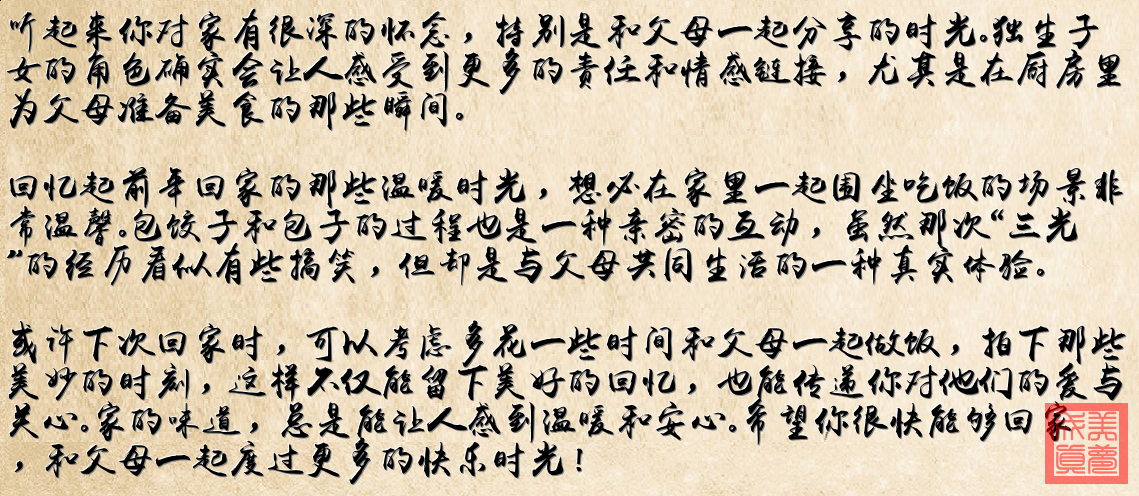 听起来你对家有很深的怀念，特别是和父母一起分享的时光。独生子
女的角色确实会让人感受到更多的责任和情感链接，尤其是在厨房里
为父母准备美食的那些瞬间。
回忆起前年回家的那些温暖时光，想必在家里一起围坐吃饭的场景非
常温馨。包饺子和包子的过程也是一种亲密的互动，虽然那次“三光
”的经历看似有些搞笑，但却是与父母共同生活的一种真实体验。
或许下次回家时，可以考虑多花一些时间和父母一起做饭，拍下那些
美妙的时刻，这样不仅能留下美好的回忆，也能传递你对他们的爱与
关心。家的味道，总是能让人感到温暖和安心。希望你很快能够回家
，和父母一起度过更多的快乐时光！
美梦成真